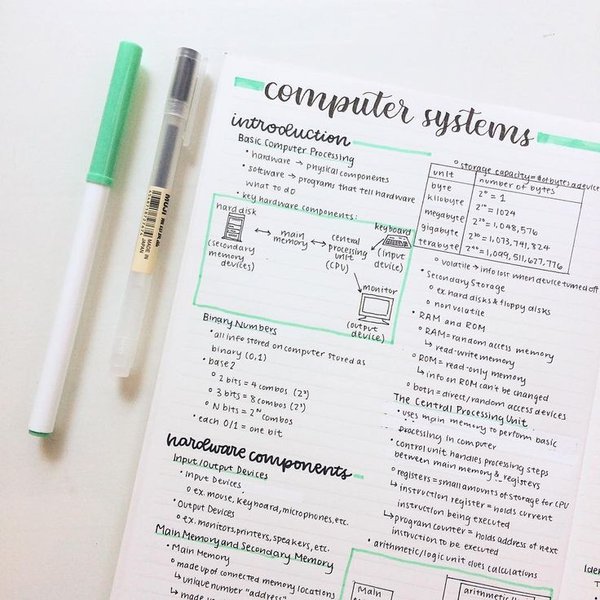 computer systems
introduction
Basic Computer Processing
• hardware → physical components
• software → programs that tell hardware
what to do
• key hardware components:
hard disk
(secondary
memory
devices)
main
memory
central
processing
unit
(CPU)
keyboard
(input
device)
monitor
(output
device)
Binary Numbers
• all info stored on computer stored as
binary (0,1)
• base 2
o 2 bits = 4 combos (2²)
o 3 bits = 8 combos (2³)
o N bits = 2ᴺ combos
• each 0/1 = one bit
hardware components
Input/Output Devices
• Input Devices
o ex. mouse, keyboard, microphones, etc.
• Output Devices
o ex. monitors, printers, speakers, etc.
Main Memory and Secondary Memory
• Main Memory
o made up of connected memory locations
↳ unique number "address"
↳ made up
o storage capacity = # of bytes a device
unit number of bytes
byte 2⁰ = 1
kilobyte 2¹⁰ = 1024
megabyte 2²⁰ = 1,048,576
gigabyte 2³⁰ = 1,073,741,824
terabyte 2⁴⁰ = 1,099,511,627,776
o volatile → info lost when device turned off
• Secondary Storage
o ex. hard disks & floppy disks
o non volatile
• RAM and ROM
o RAM = random access memory
↳ read-write memory
o ROM = read-only memory
↳ info on ROM can't be changed
o both = direct/random access devices
The Central Processing Unit
• uses main memory to perform basic
processing in computer
• control unit handles processing steps
between main memory & registers
o registers = small amounts of storage for CPU
↳ instruction register = holds current
instruction being executed
↳ program counter = holds address of next
instruction to be executed
• arithmetic/logic unit does calculations
Main
arithmetic/l
MUJI
MADE IN
JAPAN